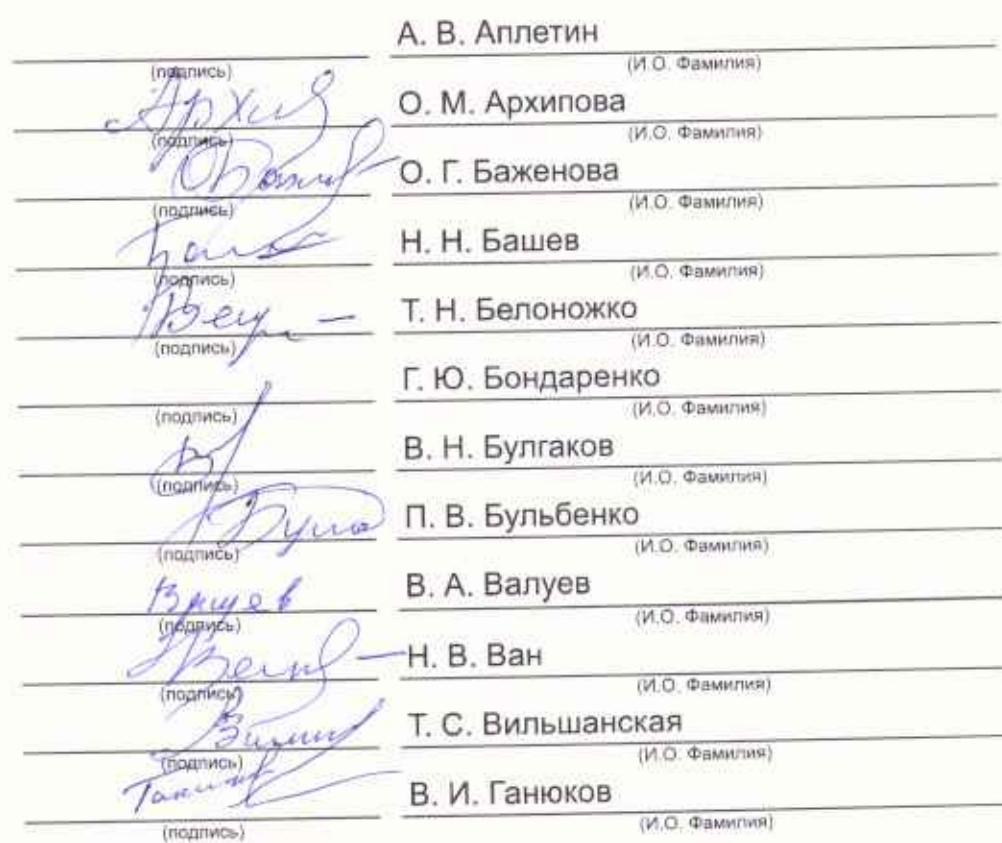 А. В. Аплетин
(подпись) (И.О. Фамилия)
О. М. Архипова
(подпись) (И.О. Фамилия)
О. Г. Баженова
(подпись) (И.О. Фамилия)
Н. Н. Башев
(подпись) (И.О. Фамилия)
Т. Н. Белоножко
(подпись) (И.О. Фамилия)
Г. Ю. Бондаренко
(подпись) (И.О. Фамилия)
В. Н. Булгаков
(подпись) (И.О. Фамилия)
П. В. Бульбенко
(подпись) (И.О. Фамилия)
В. А. Валуев
(подпись) (И.О. Фамилия)
Н. В. Ван
(подпись) (И.О. Фамилия)
Т. С. Вильшанская
(подпись) (И.О. Фамилия)
В. И. Ганюков
(подпись) (И.О. Фамилия)